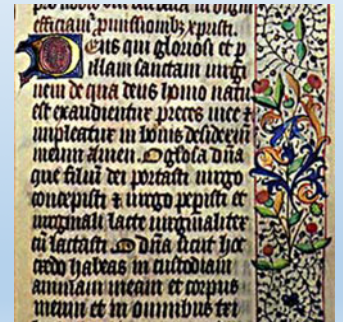 efficiam' p̄missiomb3 xpristi.
Deus qui gloriosi et p
illam sanctam virgi
nem de qua deus homo natu
est exaudientur preces mee et
impleatur in bonis desiderium
meum Amen. O gl̄osa dn̄a
que filiū dei portasti virgo
concepisti et virgo peperisti et
virginali lacte virginaliter
cū lactasti. O dn̄a sicut hoc
credo habeas in custodiam
animam meam et corpus
meum et in omnibus tri